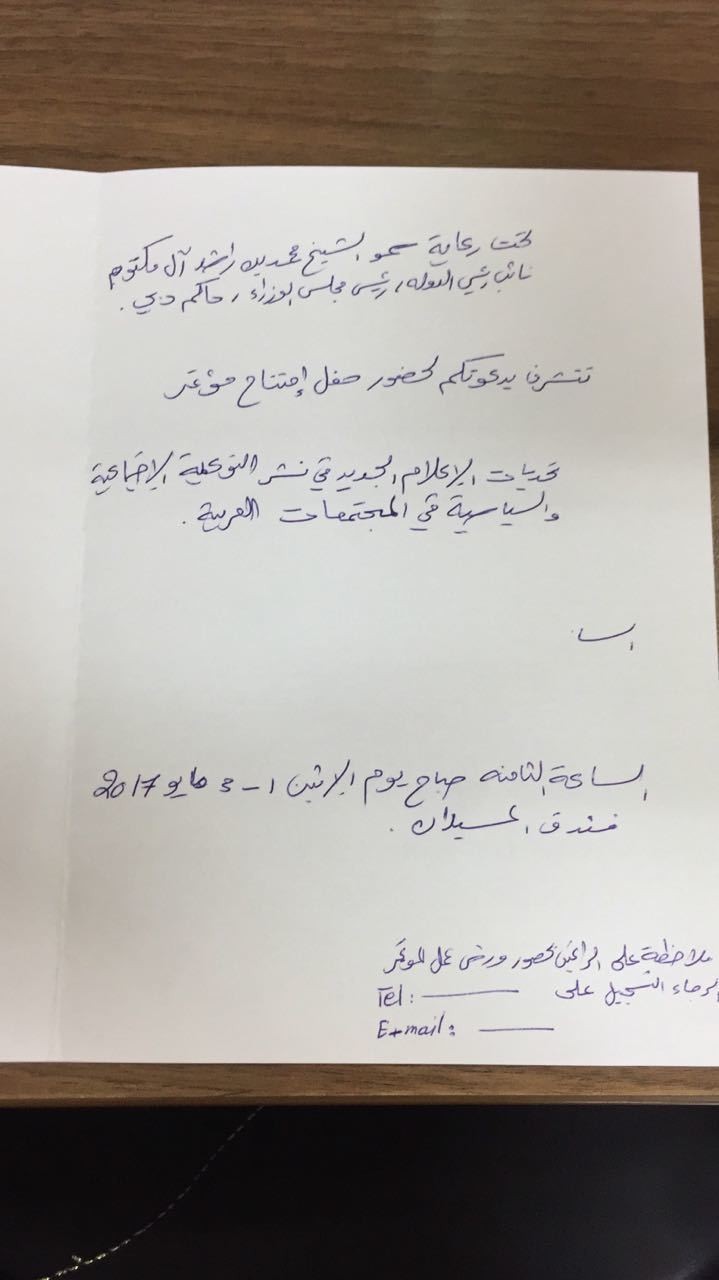 تحت رعاية سمو الشيخ محمد بن راشد آل مكتوم
نائب رئيس الدوله، رئيس مجلس الوزراء، حاكم دبي.
نتشرف بدعوتكم لحضور حفل إفتتاح مؤتمر
تحديات الإعلام الجديد في نشر التوعية الإجتماعية
والسياسية في المجتمعات العربية.
السا
الساعة الثامنه صباح يوم الإثنين ١ - 3 مايو 2017
فندق
ملاحظة على الراغبين بحضور ورش عمل المؤتمر
الرجاء التسجيل على Tel:
E-mail: